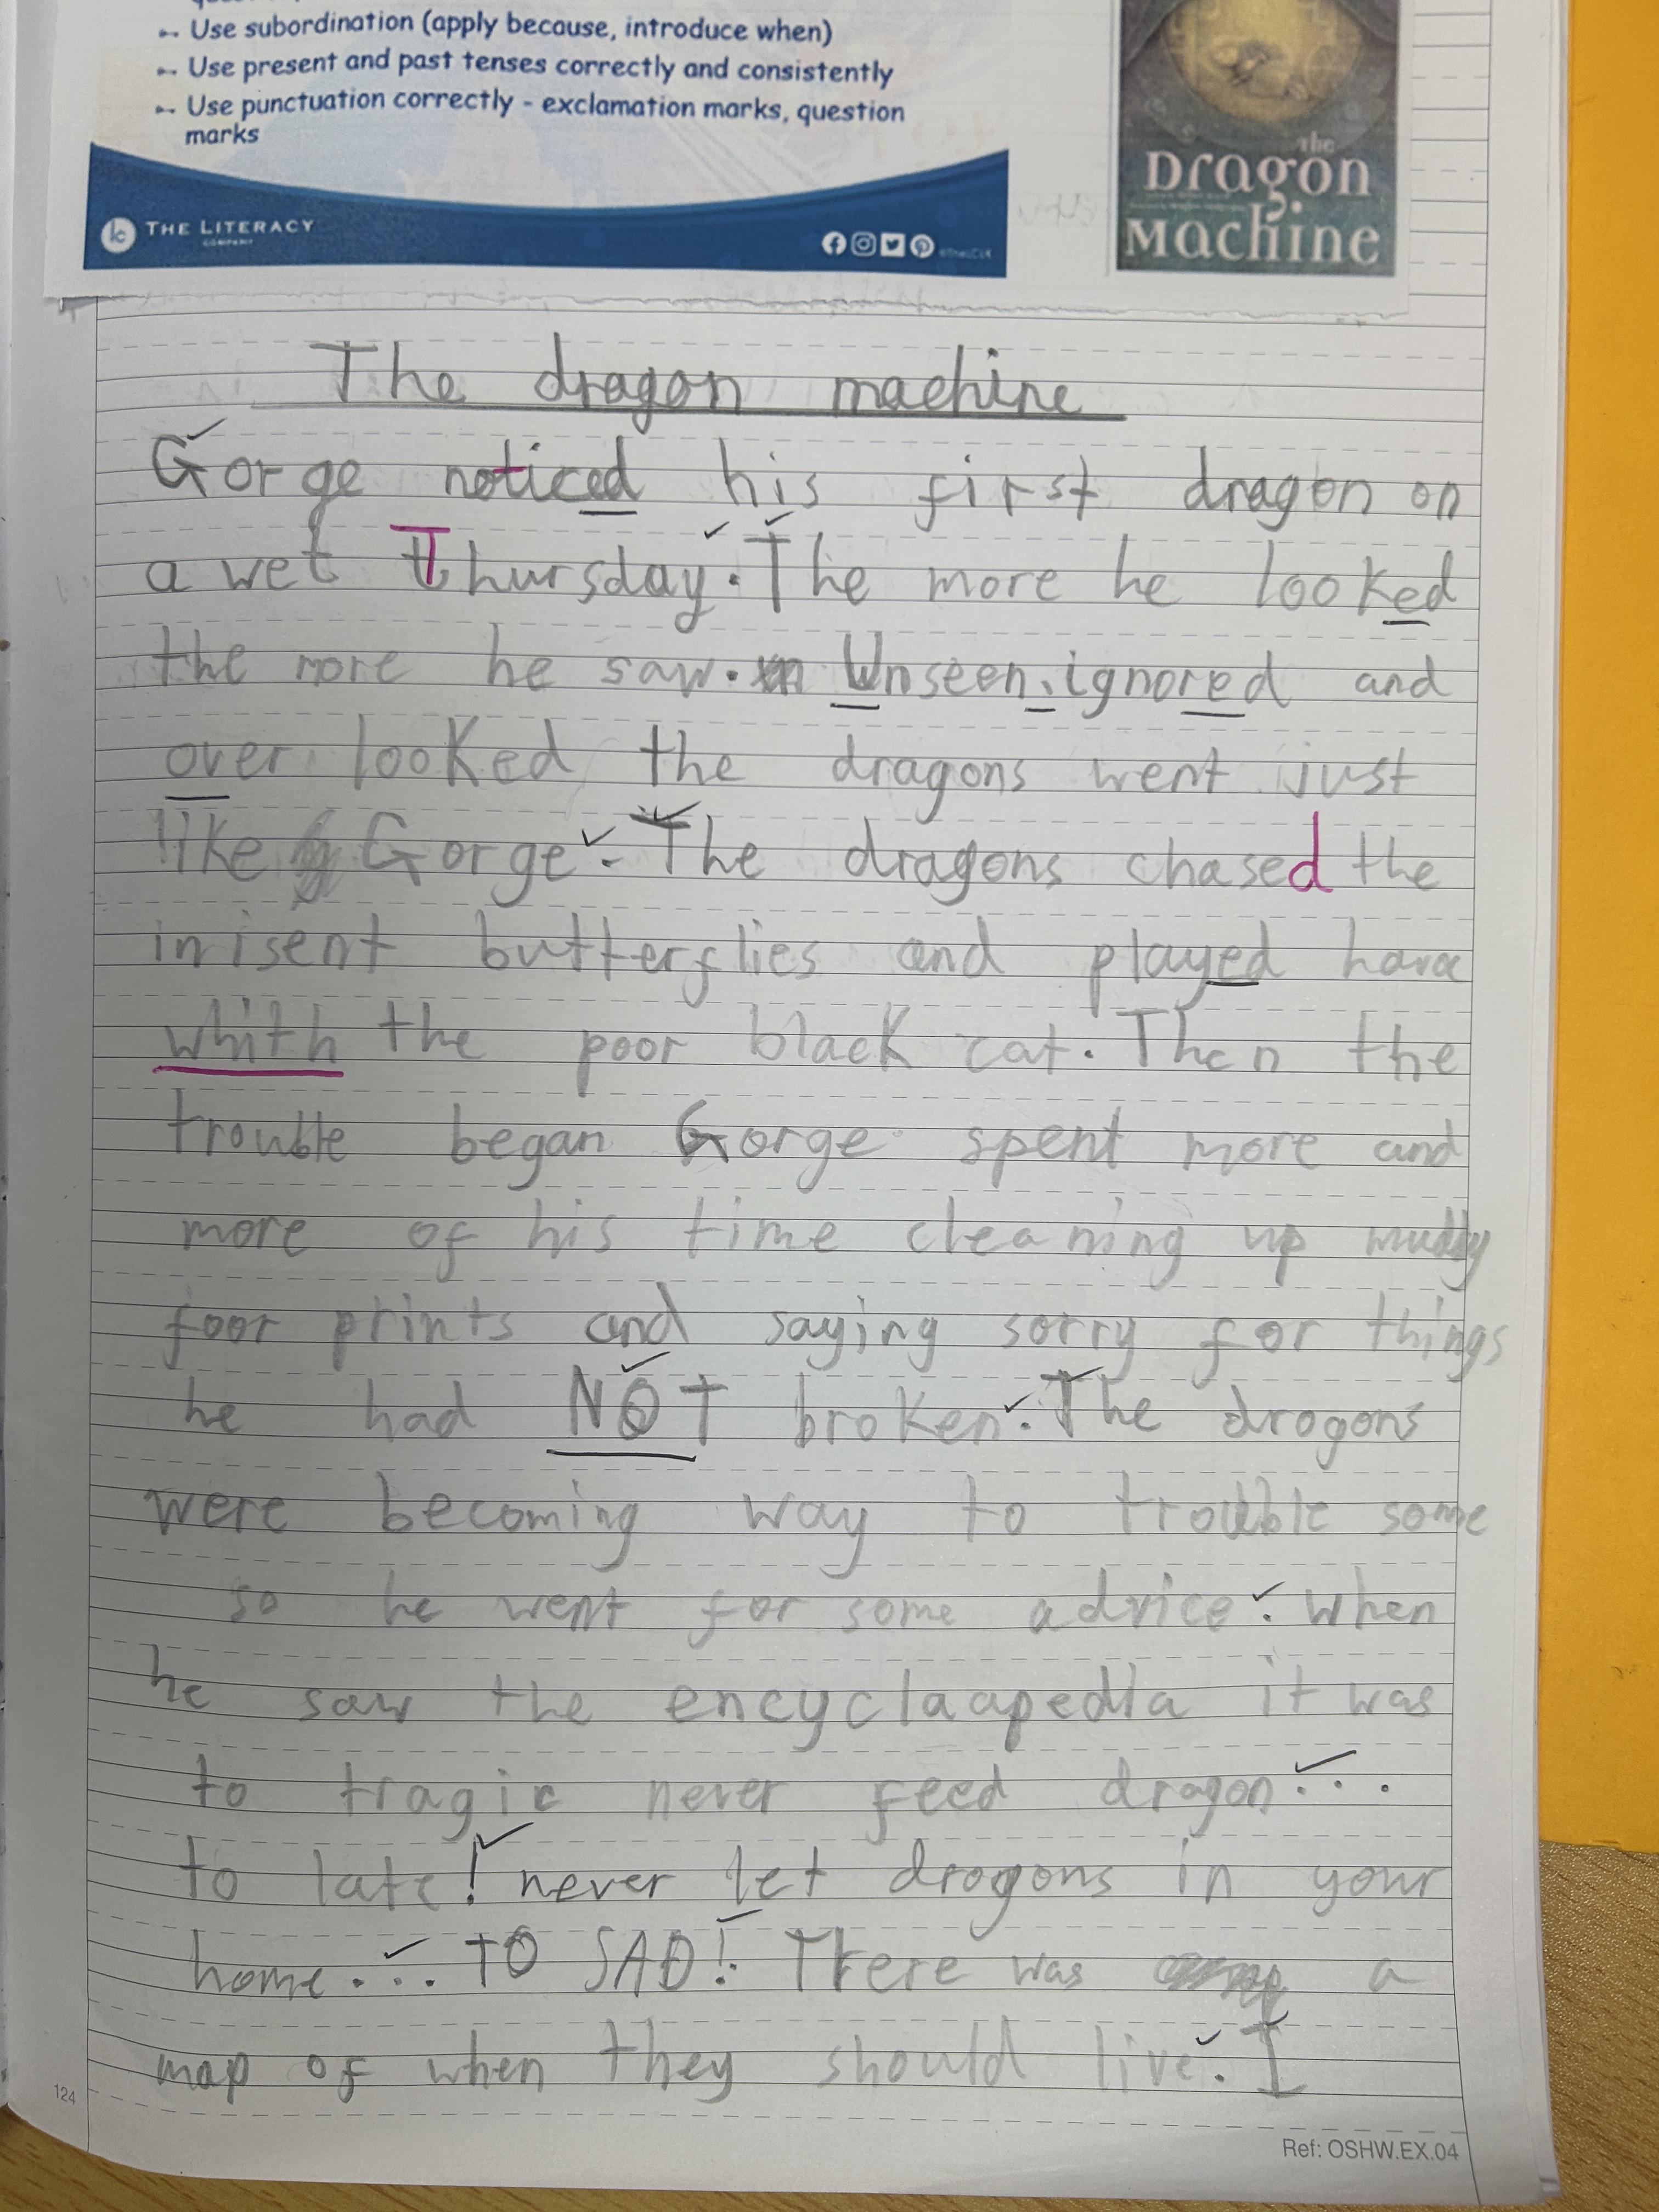 • Use subordination (apply because, introduce when)
• Use present and past tenses correctly and consistently
• Use punctuation correctly - exclamation marks, question
marks
THE LITERACY
COMPANY
the
Dragon
Machine
The dragon machine
Gorge noticed his first dragon on
a wet Thursday. The more he looked
the more he saw. Unseen, ignored and
over looked the dragons went just
like Gorge. The dragons chased the
inisent butterflies and played
whith the poor black cat. Then the
trouble began Gorge spent more and
more of his time cleaning up muddy
foor prints and saying sorry for things
he had NOT broken. The drogons
were becoming way to trouble some
so he went for some advice. when
he saw the encyclaapedia it was
to tragic never feed dragon...
to late! never let drogons in your
home... TO SAD! There was a
map of when they should live. I
124
Ref: OSHW.EX.04